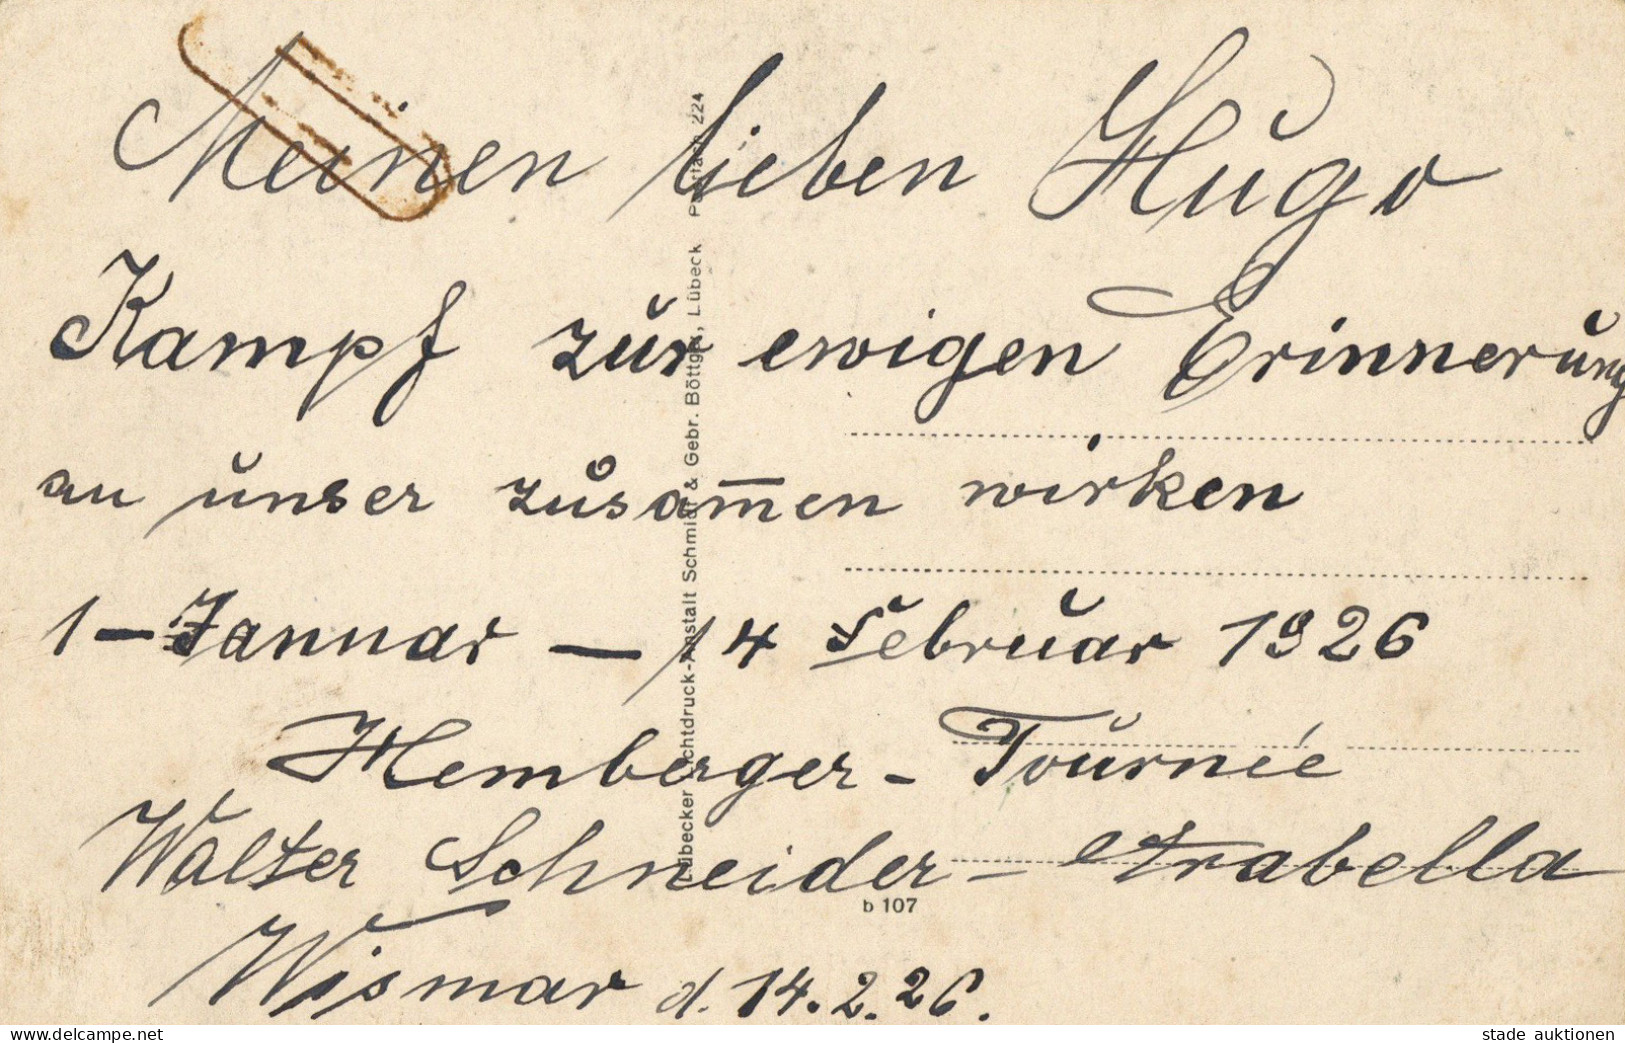 Meinen lieben Hugo
Kampf zur ewigen Erinnerung
an unser zusam̅en wirken
1 – Januar – 14 Februar 1926
Hemberger - Tournée
Walter Schneider – Arabella
Wismar d. 14.2.26.
Lübecker Lichtdruck-Anstalt Schmidt & Gebr. Böttger, Lübeck Postfach 224
b 107
www.delcampe.net
stade auktionen